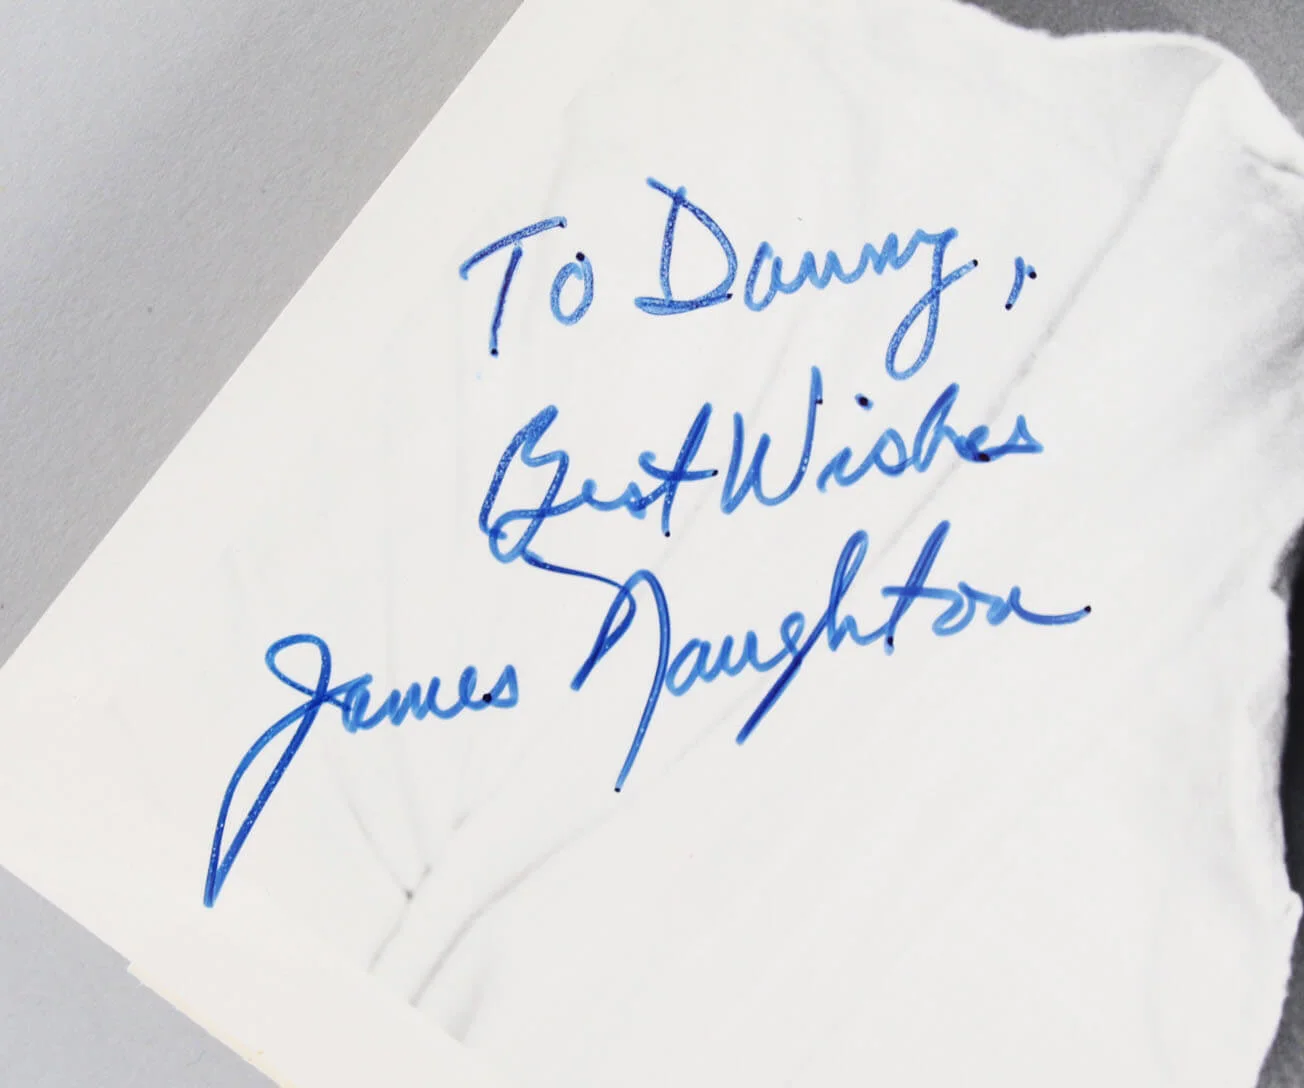 To Danny,
Best Wishes
James Naughton